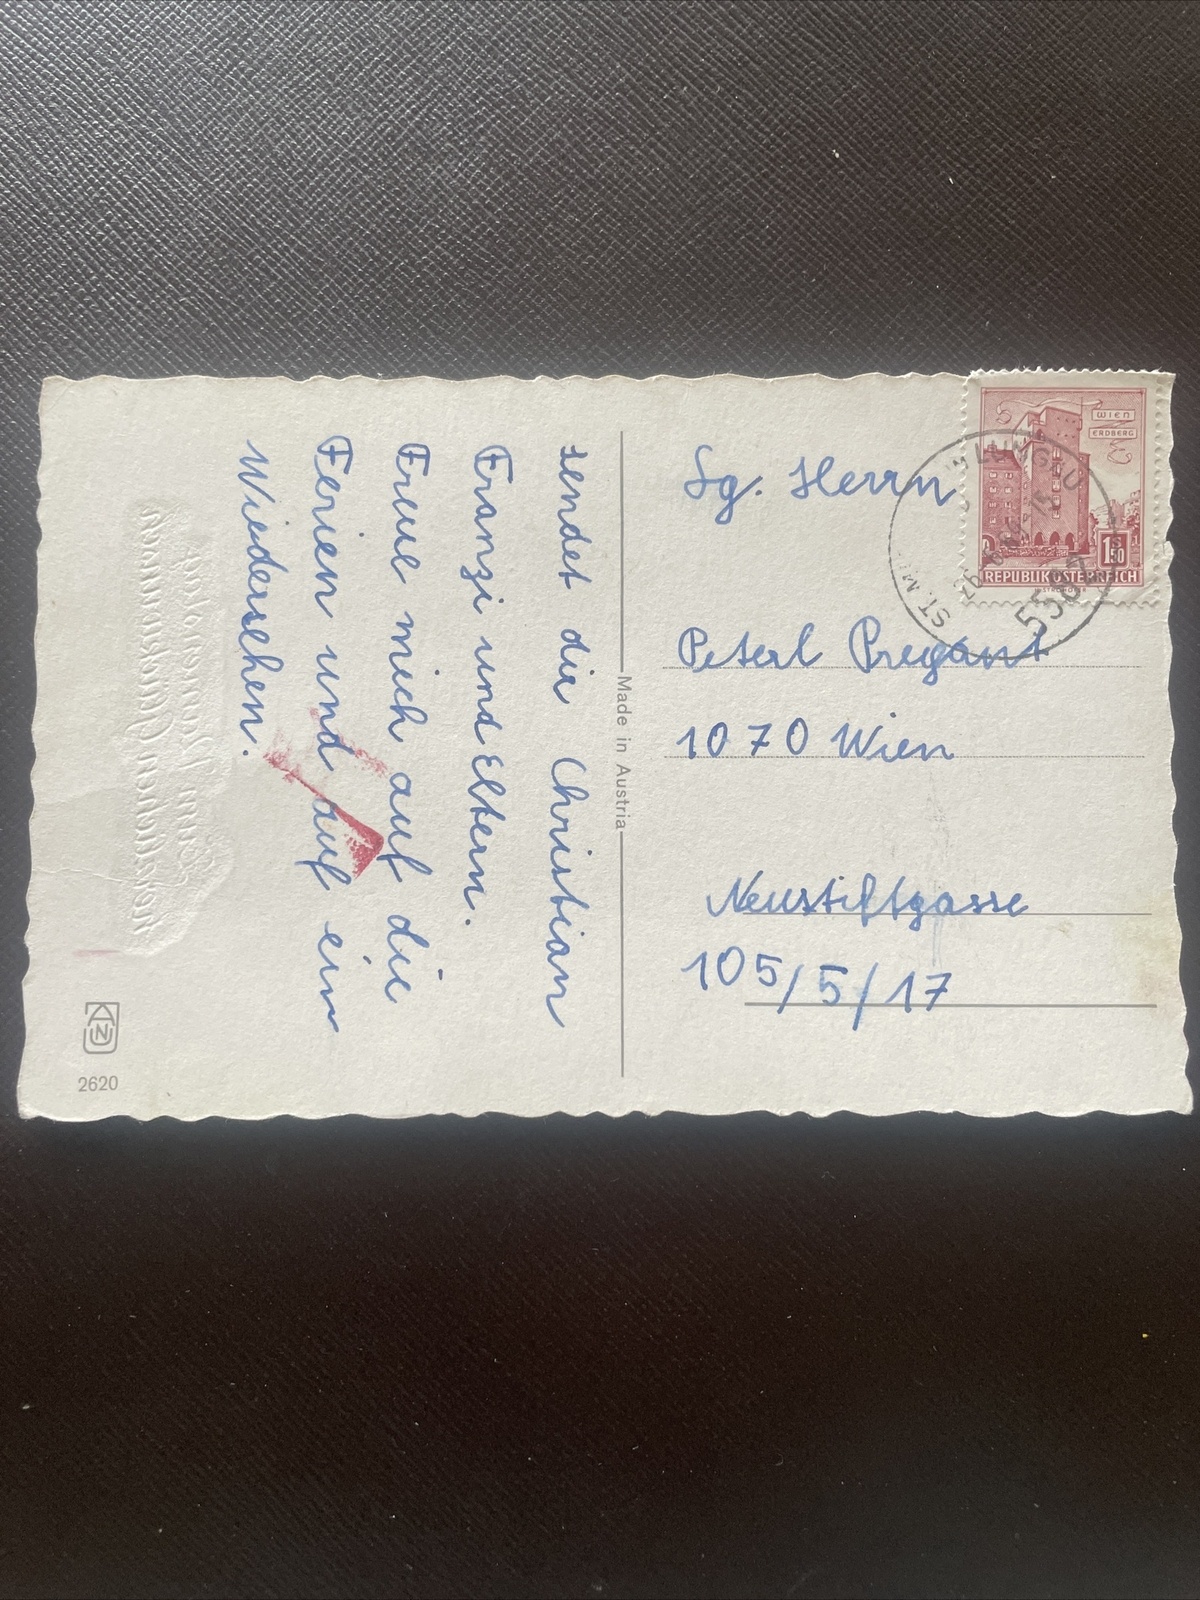 sendet dir Christian
Franzi und Eltern.
Freue mich auf die
Ferien und auf ein
Wiedersehen.
2620
Made in Austria
WIEN
ERDBERG
1.50
REPUBLIK ÖSTERREICH
LUNGAU
5582
ST. MI
Sg. Herrn
Peterl Pregant
1070 Wien
Neustiftgasse
105/5/17